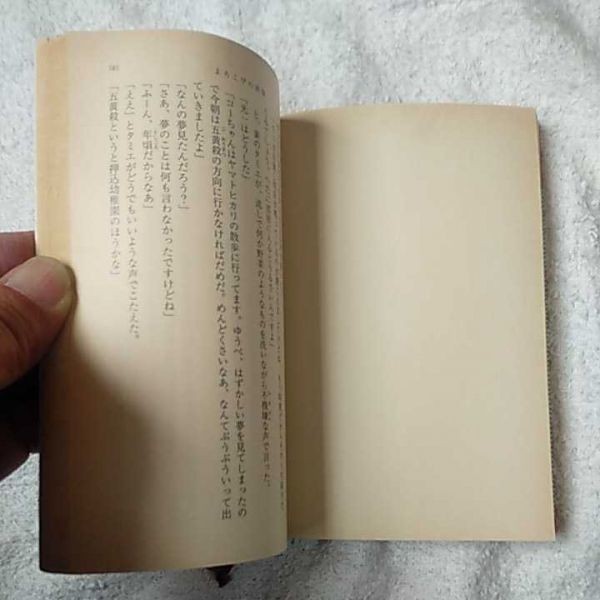 と、妻のタミエが、流しで何か野菜のようなものを洗いながら不機嫌な声で言った。
「光一はどうした」
「コーちゃんはヤマトヒカリの散歩に行ってます。ゆうべ、はずかしい夢を見てしまったの
で今朝は五黄殺の方向に行かなければだめだ。めんどくさいなあ、なんてぶうぶういって出
ていきましたよ」
「なんの夢見たんだろう?」
「さあ、夢のことは何も言わなかったですけどね」
「ふーん、年頃だからなあ」
「ええ」とタミエがどうでもいいような声でこたえた。
「五黄殺というと押込幼稚園のほうかな」